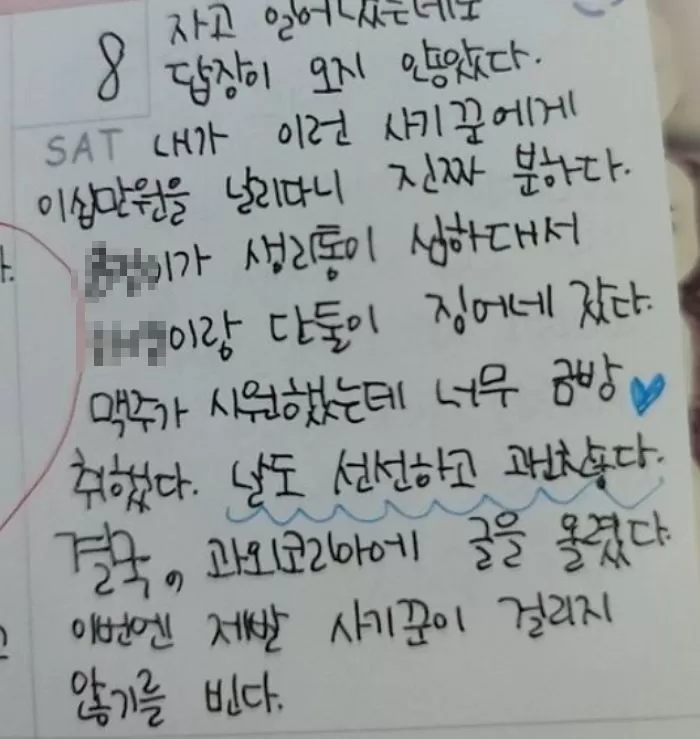 자고 일어났는데도
8 답장이 오지 않았다.
SAT 내가 이런 사기꾼에게
이십만원을 날리다니 진짜 분하다.
이가 생리통이 심하대서
이랑 단둘이 징어네 갔다.
맥주가 시원했는데 너무 금방
취했다. 날도 선선하고 괜찮았다.
결국, 과외코리아에 글을 올렸다.
이번엔 제발 사기꾼이 걸리지
않기를 빈다.